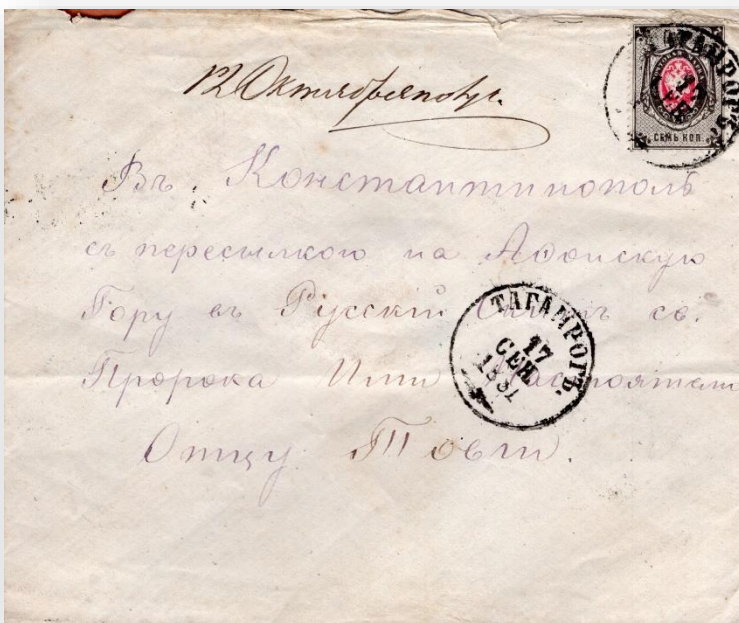 12 Октября получ.
ТАГАНРОГЪ.
СЕМЬ КОП.
Въ Константинополь
съ пересылкою на Аѳонскую
Гору въ Русскій Скитъ св.
Пророка Илии Настоятелю
ТАГАНРОГЪ.
17
СЕН.
1881
Отцу Товіи.